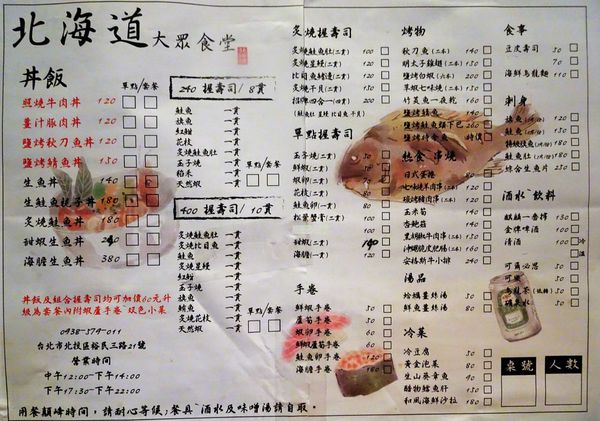 北海道 大眾食堂
丼飯
單點/套餐
照燒牛肉丼 120
薑汁豚肉丼 120
鹽烤秋刀魚丼 120
鹽烤鯖魚丼 130
生魚丼 140
生鮭魚親子丼 180
炙燒鮭魚丼 180
甜蝦生魚丼
海膽生魚丼 380
丼飯及組合握壽司均可加價60元升
級為套餐內附蝦蘆手卷 双色小菜
0938-379-011
台北市北投區裕民三路21號
營業時間
中午12:00-下午14:00
下午17:30-下午22:00
用餐顛峰時間,請耐心等候;餐具、酒水及味噌湯請自取。
240 握壽司/8貫
鮭魚 一貫
旗魚 一貫
紅魽 一貫
花枝 一貫
炙燒鮭魚肚 一貫
玉子燒 一貫
稻禾 一貫
天然蝦 一貫
單點/套餐
400 握壽司/10貫
炙燒鮭魚肚 一貫
炙燒比目魚 一貫
鮭魚 一貫
炙燒星鰻 一貫
紅魽 一貫
玉子燒 一貫
旗魚 一貫
鮪魚 一貫
炙燒花枝 一貫
天然蝦 一貫
單點/套餐
炙燒握壽司
炙燒鮭魚肚(二貫) 100
炙燒星鰻(二貫) 120
比目魚鰭邊(二貫) 120
炙燒干貝(二貫) 130
招牌四合一(四貫) 200
單點握壽司
玉子燒(二貫) 30
鮮蝦(二貫)
蝦卵(二貫)
花枝(二貫)
鮭魚卵(一貫)
松葉蟹膏(二貫)
甜蝦(二貫) 140
海膽(一貫)
手卷
鮮蝦手卷
蘆筍手卷
蝦卵手卷
蝦蘆手卷
鮭魚卵手卷
海膽手卷
烤物
秋刀魚(二本) 140
明太子雞翅(二本) 140
鹽烤白蝦(六本) 200
草蝦七味燒(三本) 140
竹筴魚一夜乾 160
鹽烤鯖魚
鹽烤鮭魚頭下巴
鹽烤時令魚 時價
熱食 串燒
日式蛋捲
七味燒羊肉串(二本)
碳烤豬肉串(二本)
玉米筍
杏鮑菇
黑胡椒牛肉串(二本)
沖繩脆皮肥腸(二本)
安格斯牛小排 240
湯品
蛤蠣薑絲湯 50
鮮魚薑絲湯 80
冷菜
冷豆腐 30
黃金泡菜 80
生山葵章魚 80
醋物鱈魚肝 180
和風海鮮沙拉 180
食事
豆皮壽司 30
70
海鮮烏龍麵 110
刺身
旗魚
鮮蝦
鮭魚肚
綜合生魚片 230
酒水、飲料
麒麟一番搾 130
金牌啤酒 100
清酒 100 冷
溫
可爾必思 30
可樂 30
烏龍茶
礦泉水
桌號 人數